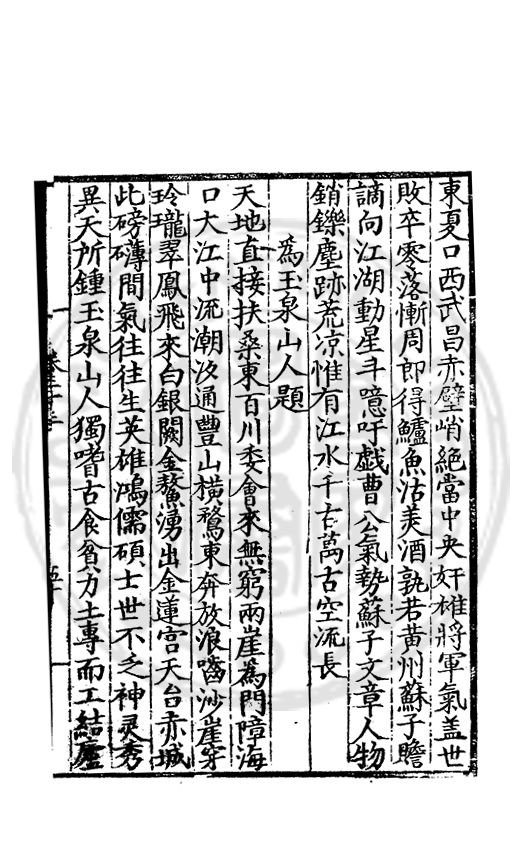 東夏口西武昌赤壁峭絕當中央奸雄將軍氣盖世
敗卒零落慚周郎得鱸魚沽美酒孰若黄州蘇子瞻
謫向江湖動星斗噫吁戯曹公氣勢蘇子文章人物
銷鑠塵跡荒凉惟有江水千古萬古空流長
為玉泉山人題
天地直接扶桑東百川委會來無窮兩崖為門障海
口大江中流潮汐通豐山橫騖東奔放浪嚙沙崖穿
玲瓏翠鳳飛來白銀闕金鰲湧出金蓮宫天台赤城
此磅礴間氣往往生英雄鴻儒碩士世不乏神灵秀
異天所鍾玉泉山人獨嗜古食貧力士專而工結廬